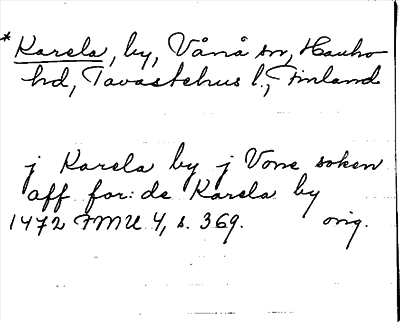 *Karela, by, Vånå sn, Hauho
hd, Tavastehus l., Finland
j Karela by j Vone soken
aff for: de Karela by
1472 FMU 4, s. 369. orig.